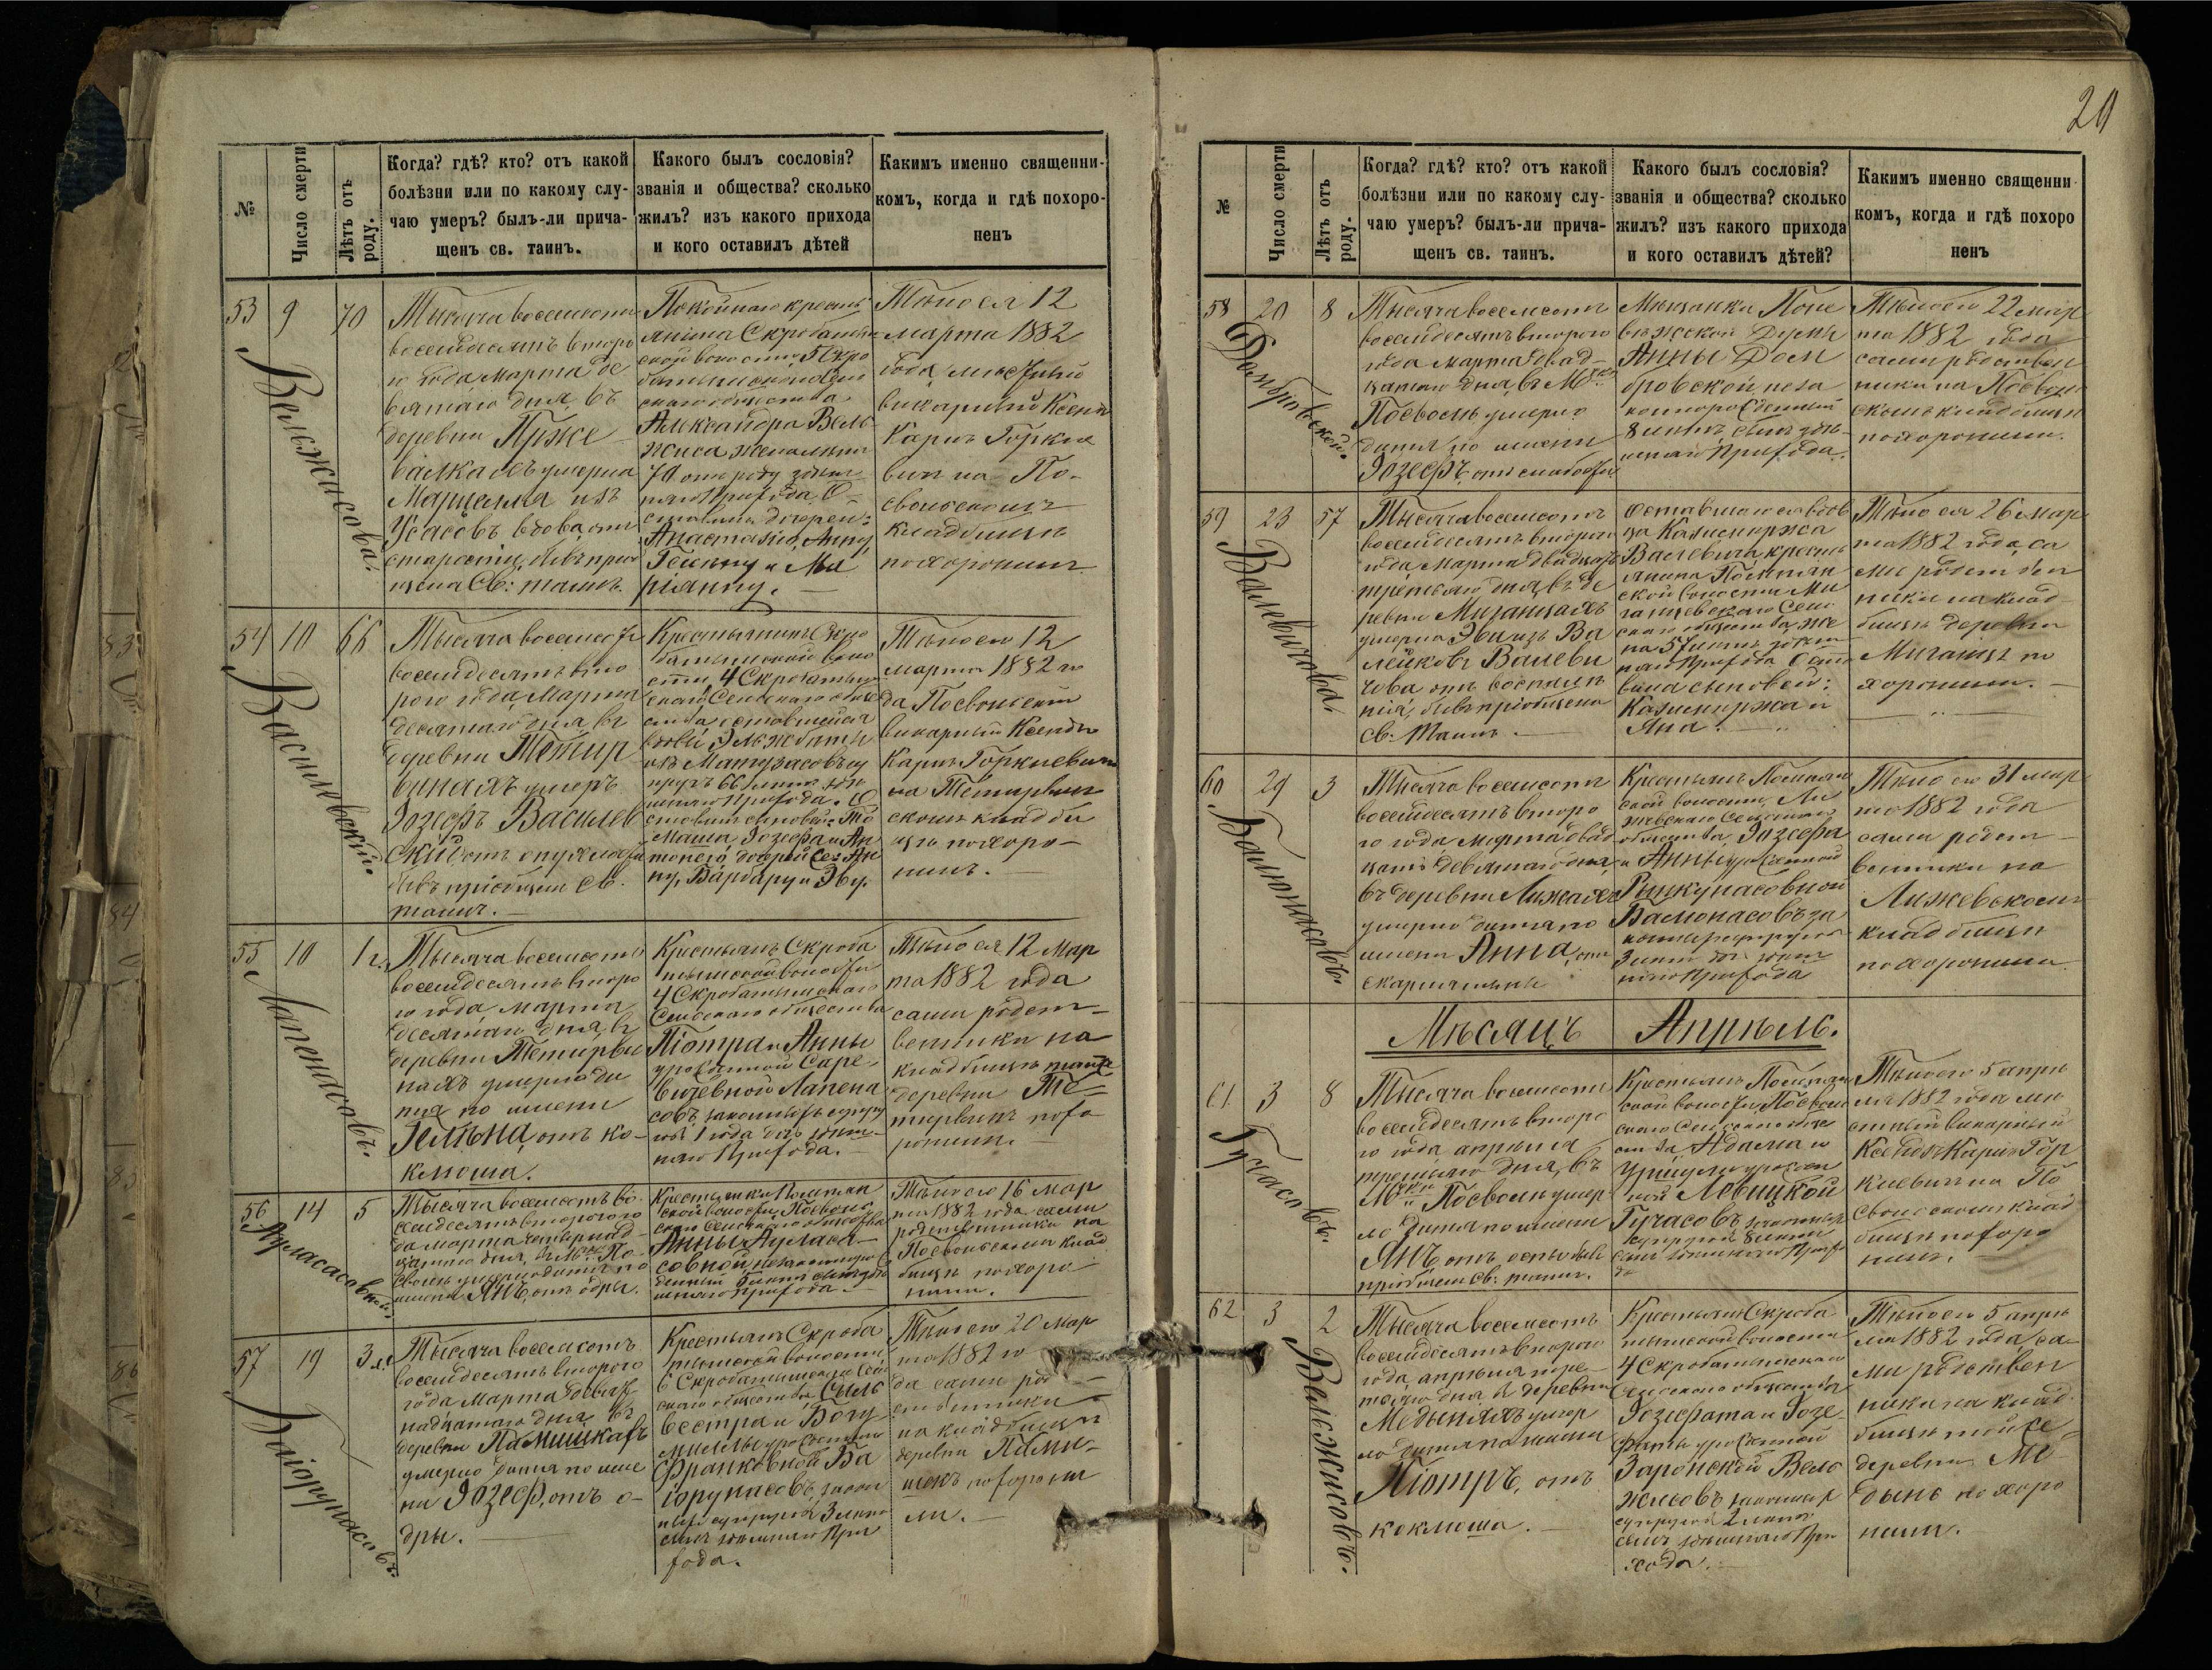 20
№
Число смерти
Лѣтъ отъ
роду.
Когда? гдѣ? кто? отъ какой
болѣзни или по какому слу-
чаю умеръ? былъ-ли прича-
щенъ св. таинъ.
Какого былъ сословія?
званія и общества? сколько
жилъ? изъ какого прихода
и кого оставилъ дѣтей
Какимъ именно священни-
комъ, когда и гдѣ похоро-
ненъ
53
9
70
Вельжисова.
Тысяча восемсотъ
восемдесятъ второ
го года Марта де
вятаго дня, въ
деревни Прже
валкахъ умерла
Марцелла изъ
Усасовъ вдова, отъ
старости, бывъ прио
щена Св: таинъ.
Покойнаго кресть
янина Скробатын
ской волости
скаго общества
Александра Вель
жиса жена лѣтъ
70 отъ роду здѣш
няго Прихода О
ставила дочерей:
Анастазію, Анну,
Гелену и Ма
ріанну. —
Тѣло ея 12
марта 1882
года, мѣстный
викарный Ксендзъ
Кароль Горкие
вичъ на По-
свольскомъ
кладбищѣ
похоронилъ
54
10
66
Василевский.
Тысяча восемсотъ
восемдесятъ вто
рого года, Марта
десятаго дня въ
деревни Тетир
винахъ умеръ
Іозефъ Василев
скій отъ опухлости
бывъ пріобщенъ Св.
таинъ. —
Крестьянинъ Скро
батынской воло
сти, 4 Скробатын
скаго Сельскаго обще
ства, оставшейся
вдовы Эльжбеты
изъ Матузасовъ су
пругъ 66 лѣтъ здѣ
шняго Прихода. О
ставилъ сыновей: То
маша, Іозефа и Ан
тонего, дочерей: Ан
ну, Варвару и Эву.
Тѣло его 12
марта 1882 го
да Посвольскій
викарный Ксендзъ
Кароль Горкиевичъ
на Тетирвин
скомъ кладби
щѣ похоро-
нилъ. —
55
10
1 г.
Лапенасовъ.
Тысяча восемсотъ
восемдесятъ второ
го года, марта
десятаго дня, въ
деревни Тетирви
нахъ умерло ди
тя по имени
Гелена, отъ ко-
клюша.
Крестьянъ Скроба
тынской волости
4 Скробатынскаго
Сельскаго общества
Піотра и Анны
урожденной Саре-
вичевной Лапена
совъ, законныхъ супру
говъ 1 года дочь здѣш-
няго Прихода. —
Тѣло ея 12 Мар
та 1882 года
сами родст-
венники на
кладбищѣ тойже
деревни Те=
тирвинъ похо
ронили. —
56
14
5
Ауласасовной.
Тысяча восемсотъ во
семдесятъ второго го
да марта четырнад-
цатаго дня, въ М. По-
сволѣ умерло дитя по
имени Янъ, отъ одры.
Крестьянки Посволь
ской волости, Посволь
скаго Сельскаго общества
Анны Ауласа-
совной, незаконнорож
денный 5 лѣтъ сынъ здѣ
шняго Прихода. —
Тѣло его 16 Мар
та 1882 года сами
родственники на
Посвольскомъ клад
бищѣ похоро
нили.
57
19
3 л.
Баіорунасовъ.
Тысяча восемсотъ
восемдесятъ второго
года Марта девят
надцатаго дня въ
деревни Памишкахъ
умерло дитя по име
ни Іозефъ, отъ о-
дры. —
Крестьянъ Скроба
тынской волости
6 Скробатынскаго Сель
скаго общества Силь
вестра и Богу
миллы урожденной
Франковной Ба
іорунасовъ, закон
ныхъ супруговъ 3 лѣтъ
сынъ здѣшняго При
хода.
Тѣло его 20 Мар
та 1882 го
да сами род
ственники
на кладбищѣ
деревни Пами-
шекъ похорони
ли. —
№
Число смерти
Лѣтъ отъ
роду.
Когда? гдѣ? кто? отъ какой
болѣзни или по какому слу-
чаю умеръ? былъ-ли прича-
щенъ св. таинъ.
Какого былъ сословія?
званія и общества? сколько
жилъ? изъ какого прихода
и кого оставилъ дѣтей?
Какимъ именно священни-
комъ, когда и гдѣ похоро
ненъ
58
20
8
Домбровской.
Тысяча восемсотъ
восемдесятъ второго
года Марта двад-
цатаго дня, въ М.
Посволѣ умерло
дитя по имени
Іозефъ, отъ слабости
Мѣщанки Поне
вѣжской Думы
Анны Дом
бровской, неза
коннорожденный
8 лѣтъ, сынъ здѣ-
шняго Прихода.
Тѣло его 22 мар
та 1882 года
сами родствен
ники на Посволь
скомъ кладбищѣ
похоронили.
59
23
57
Валевичова.
Тысяча восемсотъ
восемдесятъ второго
года Марта двадцать
третьяго дня, въ де
ревни Мичанцахъ
умерла Эва изъ Ва
лейковъ Валеви
чова отъ воспале
нія, бывъ пріобщена
Св: Таинъ. —
Оставшагося вдов
ца Казимиржа
Валевича, крестья
янина
ской волости Ми
ганцевскаго Сель
скаго общества, же
на 57 лѣтъ здѣш
няго Прихода Оста
вила сыновей:
Казимиржа и
Яна. —
Тѣло ея 26 Мар
та 1882 года, са
ми родствен
ники на клад
бищѣ деревни
Миганцъ по
хоронили. —
60
29
3
Балюнасовъ.
Тысяча восемсотъ
восемдесятъ второ
го года, марта двад
цать девятаго дня,
въ деревни Лижахъ
умерло дитя по
имени Анна, отъ
скарлатины
Крестьянъ
ской волости, Ли
жевскаго Сельскаго
общества, Іозефа
и Анны урожденной
Ринкунасовной
Балюнасовъ за
конныхъ супруговъ
3 лѣтъ дочь здѣш
няго Прихода
Тѣло ея 31 мар
та 1882 года
сами родст-
венники на
Лижевскомъ
кладбищѣ
похоронили
Мѣсяцъ Апрѣль.
61
3
8
Гучасовъ.
Тысяча восемсотъ
восемдесятъ второ
го года апрѣля
третьяго дня, въ
М. Посволѣ умер
ло дитя по имени
Янъ, отъ оспы бывъ
пріобщенъ Св: таинъ.
Крестьянъ
ской волости, Посволь
скаго Сельскаго обще
ства Адама и
Уршули урожден
ной Левицкой
Гучасовъ законныхъ
супруговъ 8 лѣтъ
сынъ здѣшняго Прихо
да
Тѣло его 5 апрѣ
ля 1882 года мѣ
стный викарный
Ксендзъ Кароль Гор
киевичъ на По
свольскомъ клад
бищѣ похоро
нилъ. —
62
3
2
Вельжисовъ.
Тысяча восемсотъ
восемдесятъ второго
года, апрѣля тре-
тьяго дня въ деревни
Медыняхъ умер
ло дитя по имени
Піотръ, отъ
коклюша. —
Крестьянъ Скроба
тынской волости
4 Скробатынскаго
Сельскаго общества
Іозефата и Іозе-
фаты урожденной
Заронской Вель
жисовъ законныхъ
супруговъ 2 лѣтъ
сынъ здѣшняго При
хода. —
Тѣло его 5 апрѣ
ля 1882 года са-
ми родствен
ники на клад
бищѣ тойже
деревни Ме-
дынь похоро
нили.